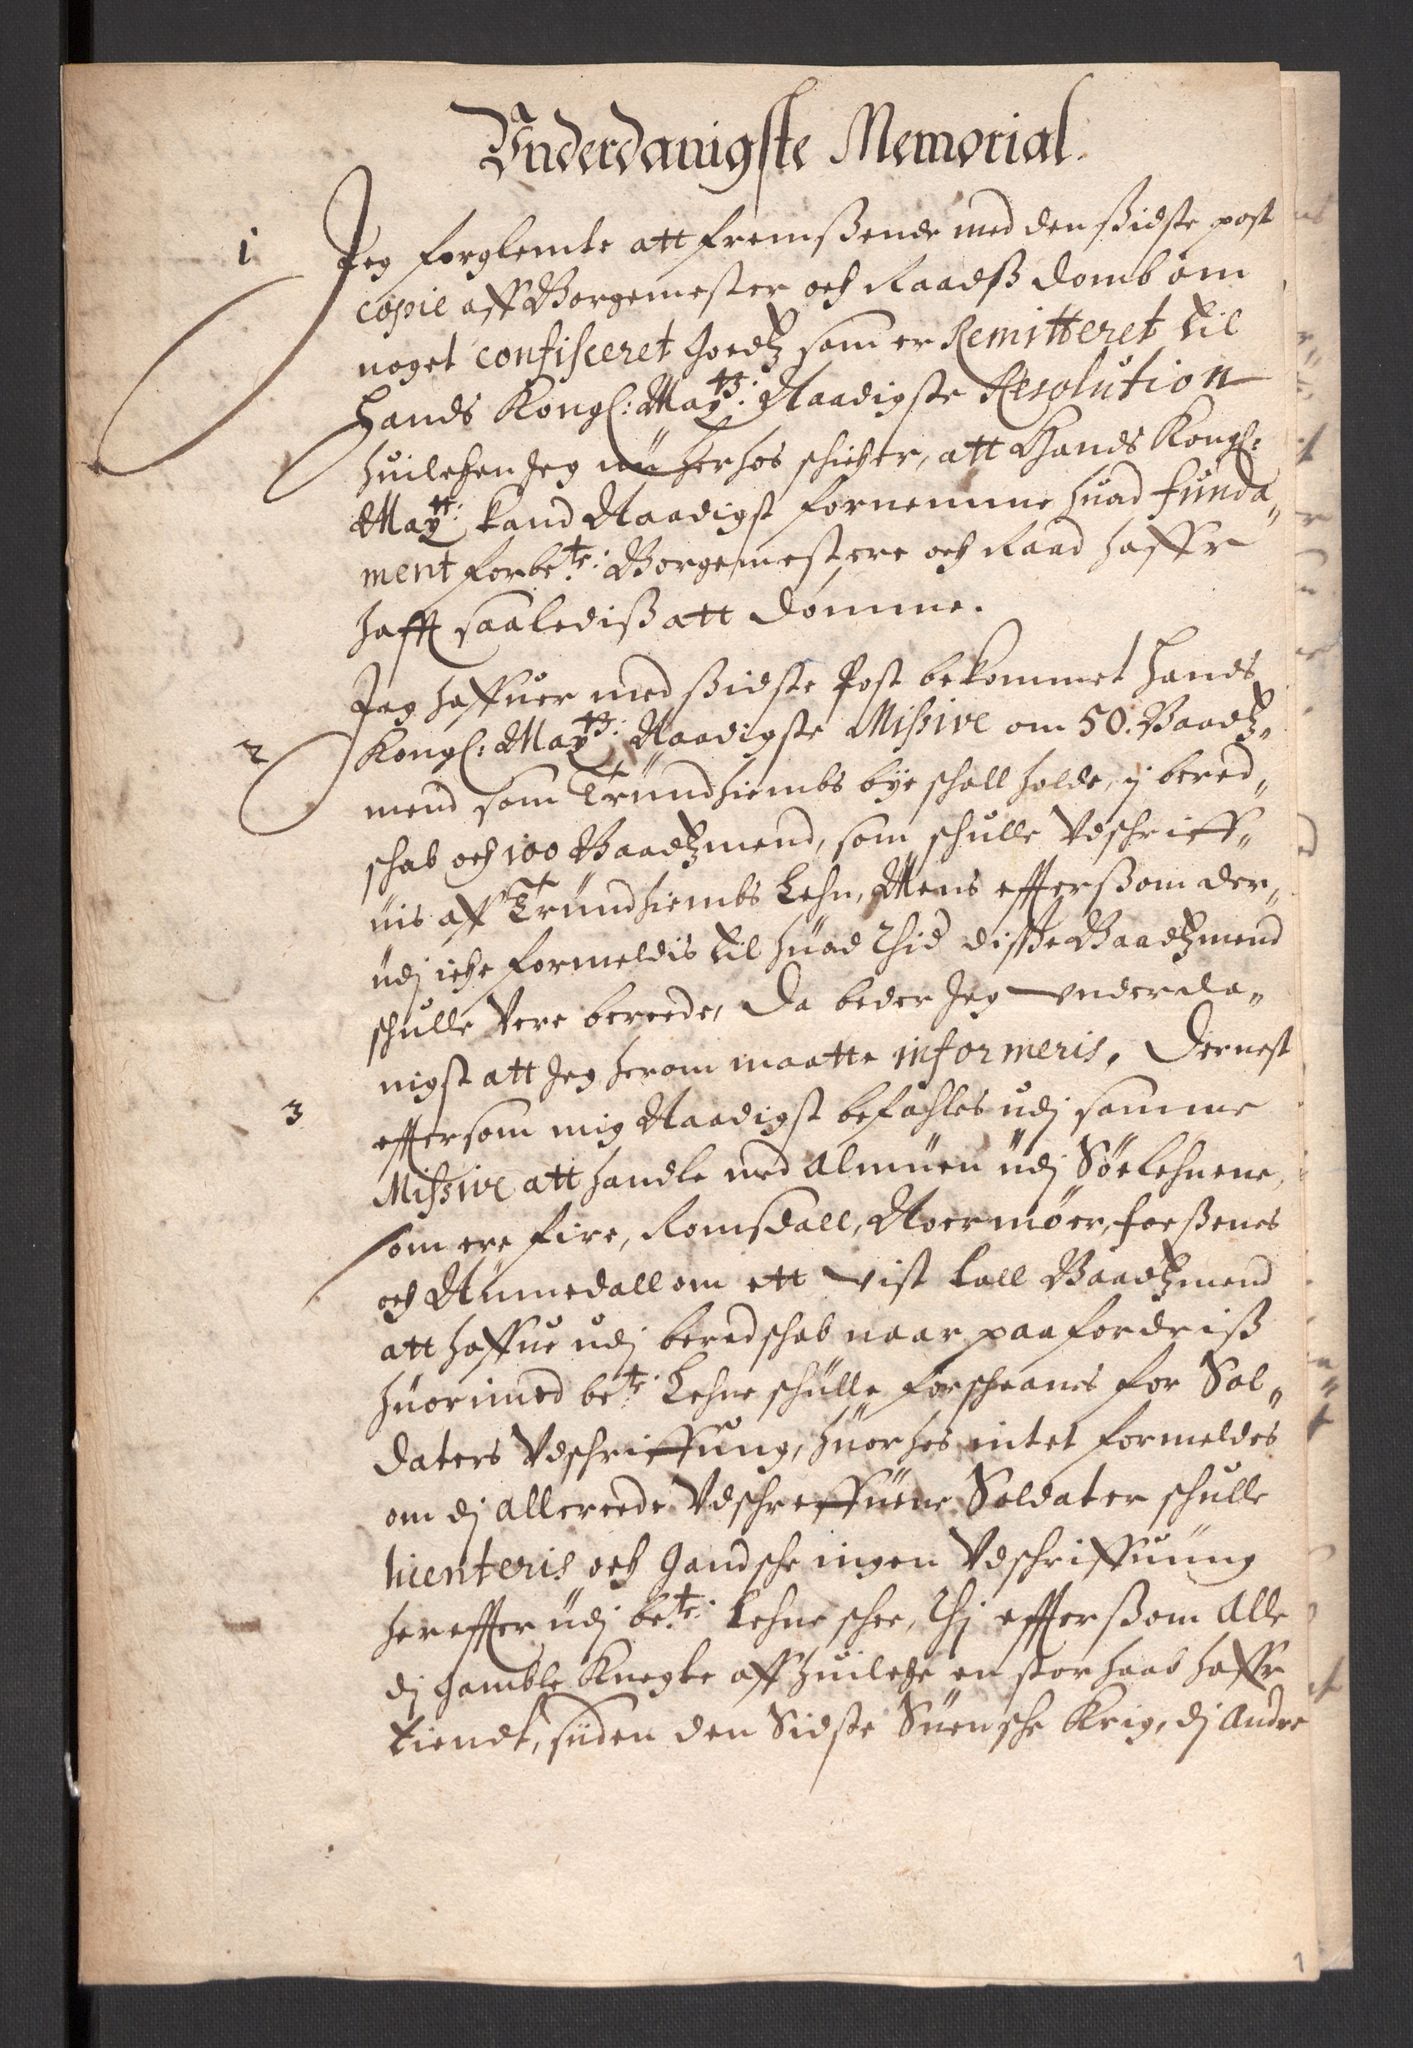 Vnderdanigste Memorial.
1 Jeg forglemte att fremßende med den ßidste post
copie aff Borgemester och Raadß domb om
noget confisceret Goedtz som er Remitteret til
Hands Kongl: Mayttz: Naadigste Resolution
huilchen Jeg nu herhos schicher, att Hands Kongl:
Maytt: kand Naadigst fornemme huad funda„
ment forbete: Borgemestere och Raad haffr
hafft saalediß att dømme.
Jeg haffuer med ßidste Post bekommet Hands
2 Kongl: Mayttz: Naadigste Missive om 50. Baadtz„
mend som Trundhiembs bye schall holde, i bered„
schab och 100 Baadtzmend, som schulle Vdschrieff„
uis aff Trundhiembs Lehn, Mens effterßom der„
udj iche formeldis til huad Thid disse Baadtzmend
schulle Vere bereede, Da beder Jeg vnderda„
nigst att Jeg herom maatte informeris. Dernest
3 effter som mig Naadigst befahles udj samme
Missive att handle med Almuen udj Søelehnene,
som ere fire, Romsdall, Noermøer, foeßenes
och Numedall om ett vist tall Baadtzmend
att haffue udj beredschab naar paafordriß
huorimod bete: Lehne schulle forschaanes for Sol„
daters Vdschriffuing, huorhos intet formeldes
om dj allereede Vdschreffuene Soldater schulle
licenteris och gandsche ingen Vdschriffuuing
hereffter udj bete: Lehne schee, Thj effterßom Alle
dj gamble Knegte aff huilche en stor haab haffr
tiendt, siiden den Sidste Suensche Krig, dj Andre
1